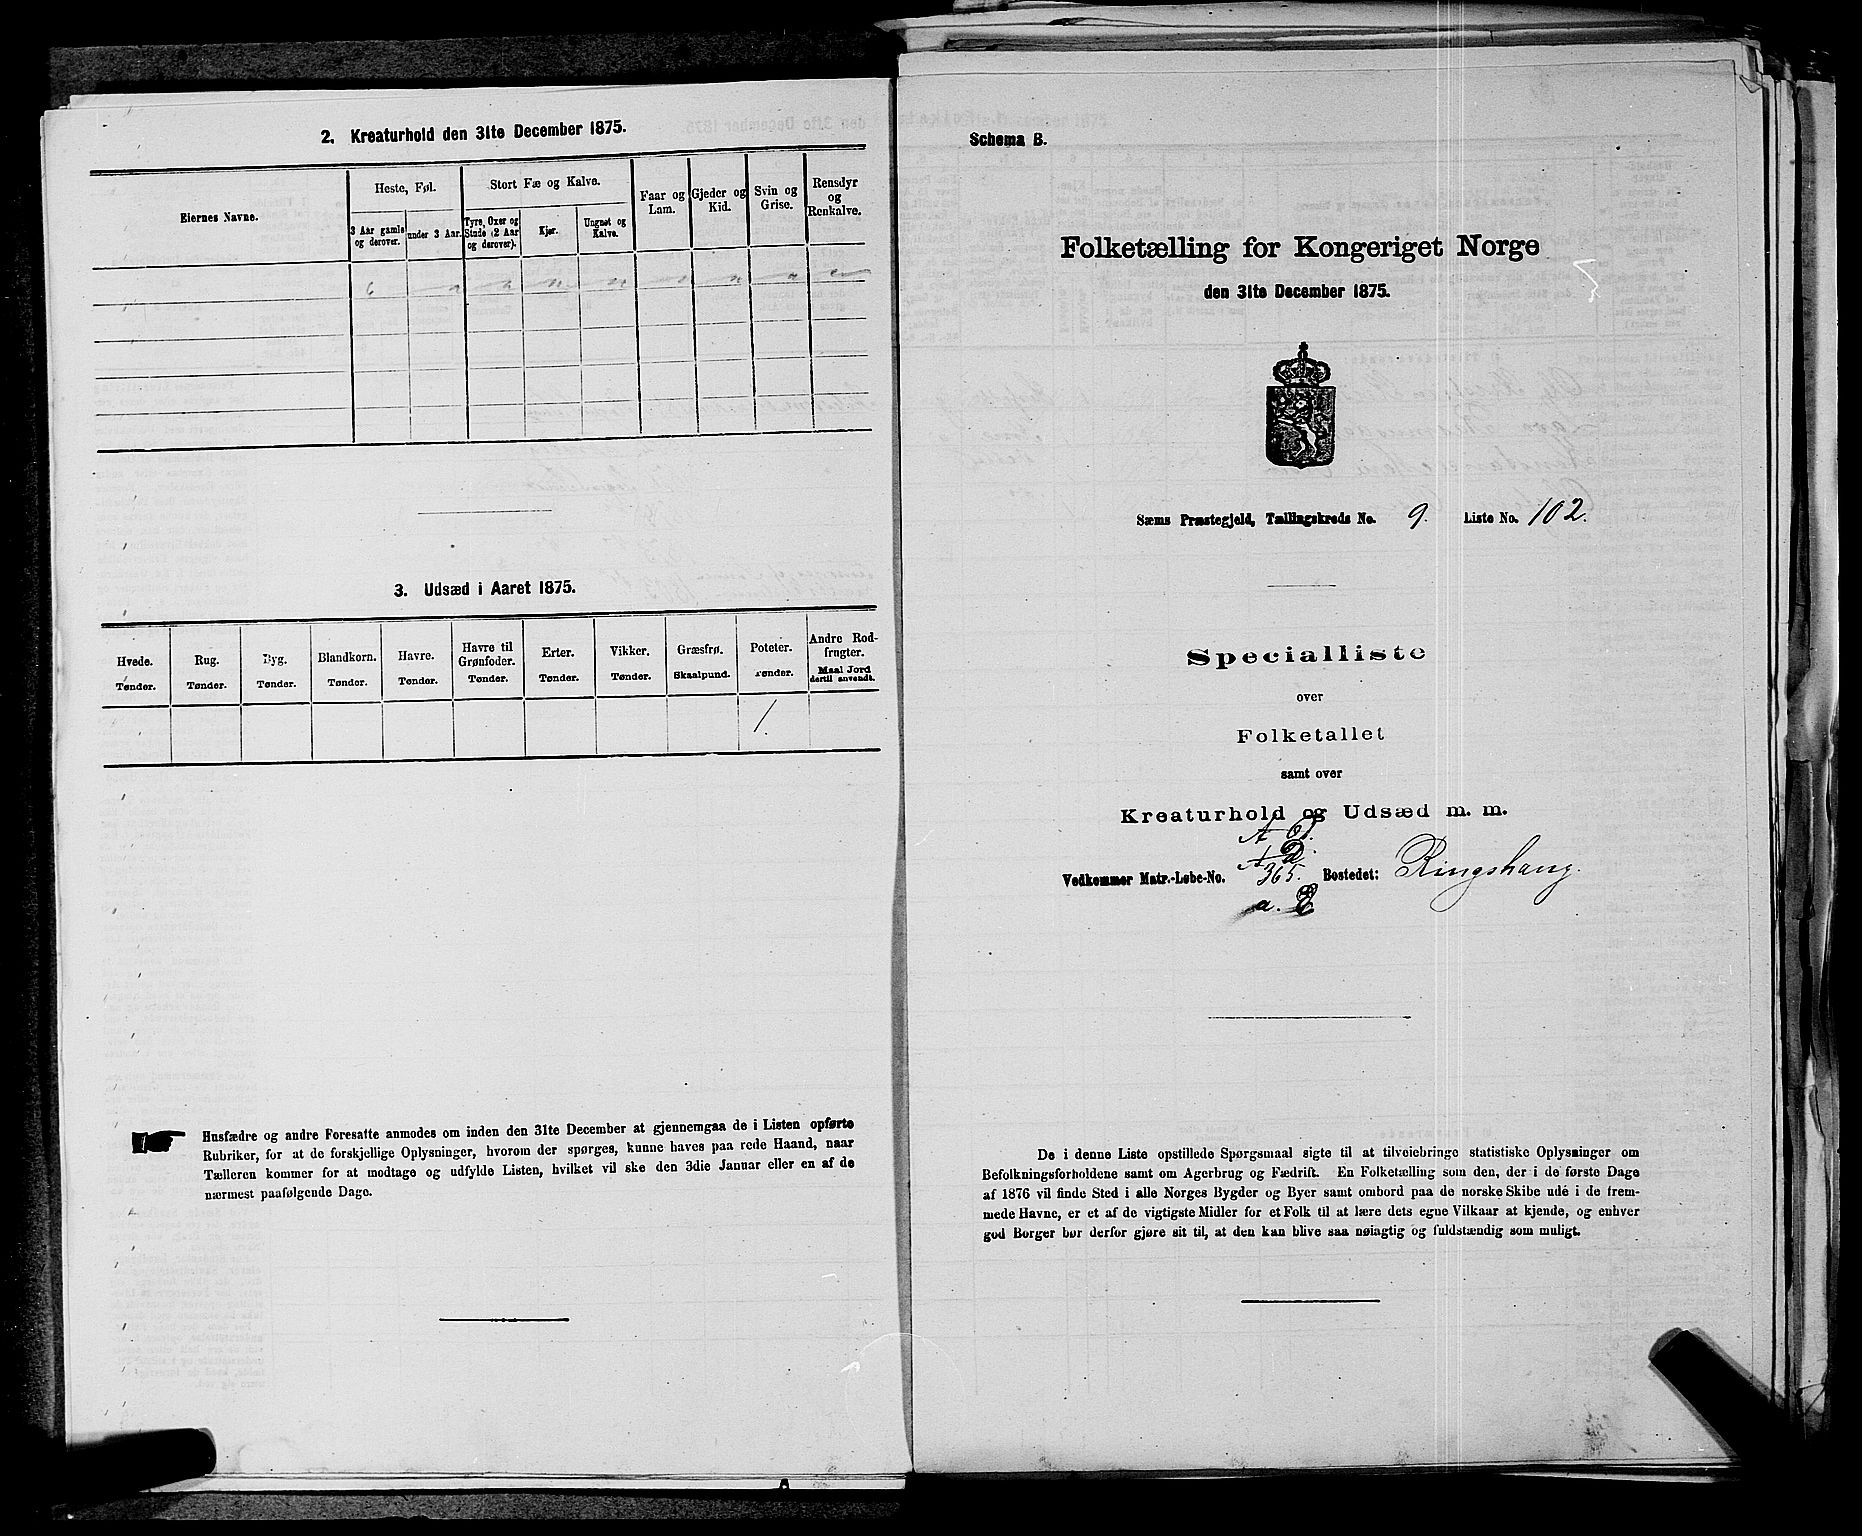 2. Kreaturhold den 31te December 1875.
Eiernes Navne.
Heste, Føl.
Stort Fæ og Kalve.
Faar og Lam.
Gjeder og Kid.
Svin og Grise.
Rensdyr og Renkalve.
3 Aar gamle og derover.
under 3 Aar.
Tyre, Oxer og Stude (2 Aar og derover).
Kjør.
Ungnøt og Kalve.
3. Udsæd i Aaret 1875.
Hvede.
Rug.
Byg.
Blandkorn.
Havre.
Havre til Grønfoder.
Erter.
Vikker.
Græsfrø.
Poteter.
Andre Rodfrugter.
Tønder.
Tønder.
Tønder.
Tønder.
Tønder.
Tønder.
Tønder.
Tønder.
Skaalpund.
Tønder.
Maal Jord dertil anvendt.
1.
Husfædre og andre Foresatte anmodes om inden den 31te December at gjennemgaa de i Listen opførte
Rubriker, for at de forskjellige Oplysninger, hvorom der spørges, kunne haves paa rede Haand, naar
Tælleren kommer for at modtage og udfylde Listen, hvilket vil ske den 3die Januar eller en af de
nærmest paafølgende Dage.
Schema B.
Folketælling for Kongeriget Norge
den 31te December 1875.
Sæms Præstegjeld, Tællingskreds No. 9. Liste No. 102.
Specialliste
over
Folketallet
samt over
Kreaturhold og Udsæd m. m.
Vedkommer Matr.-Løbe-No. 365. Bostedet: Ringshaug.
De i denne Liste opstillede Spørgsmaal sigte til at tilveiebringe statistiske Oplysninger om
Befolkningsforholdene samt om Agerbrug og Fædrift. En Folketælling som den, der i de første Dage
af 1876 vil finde Sted i alle Norges Bygder og Byer samt ombord paa de norske Skibe ude i de frem-
mede Havne, er et af de vigtigste Midler for et Folk til at lære dets egne Vilkaar at kjende, og enhver
god Borger bør derfor gjøre sit til, at den kan blive saa nøiagtig og fuldstændig som muligt.